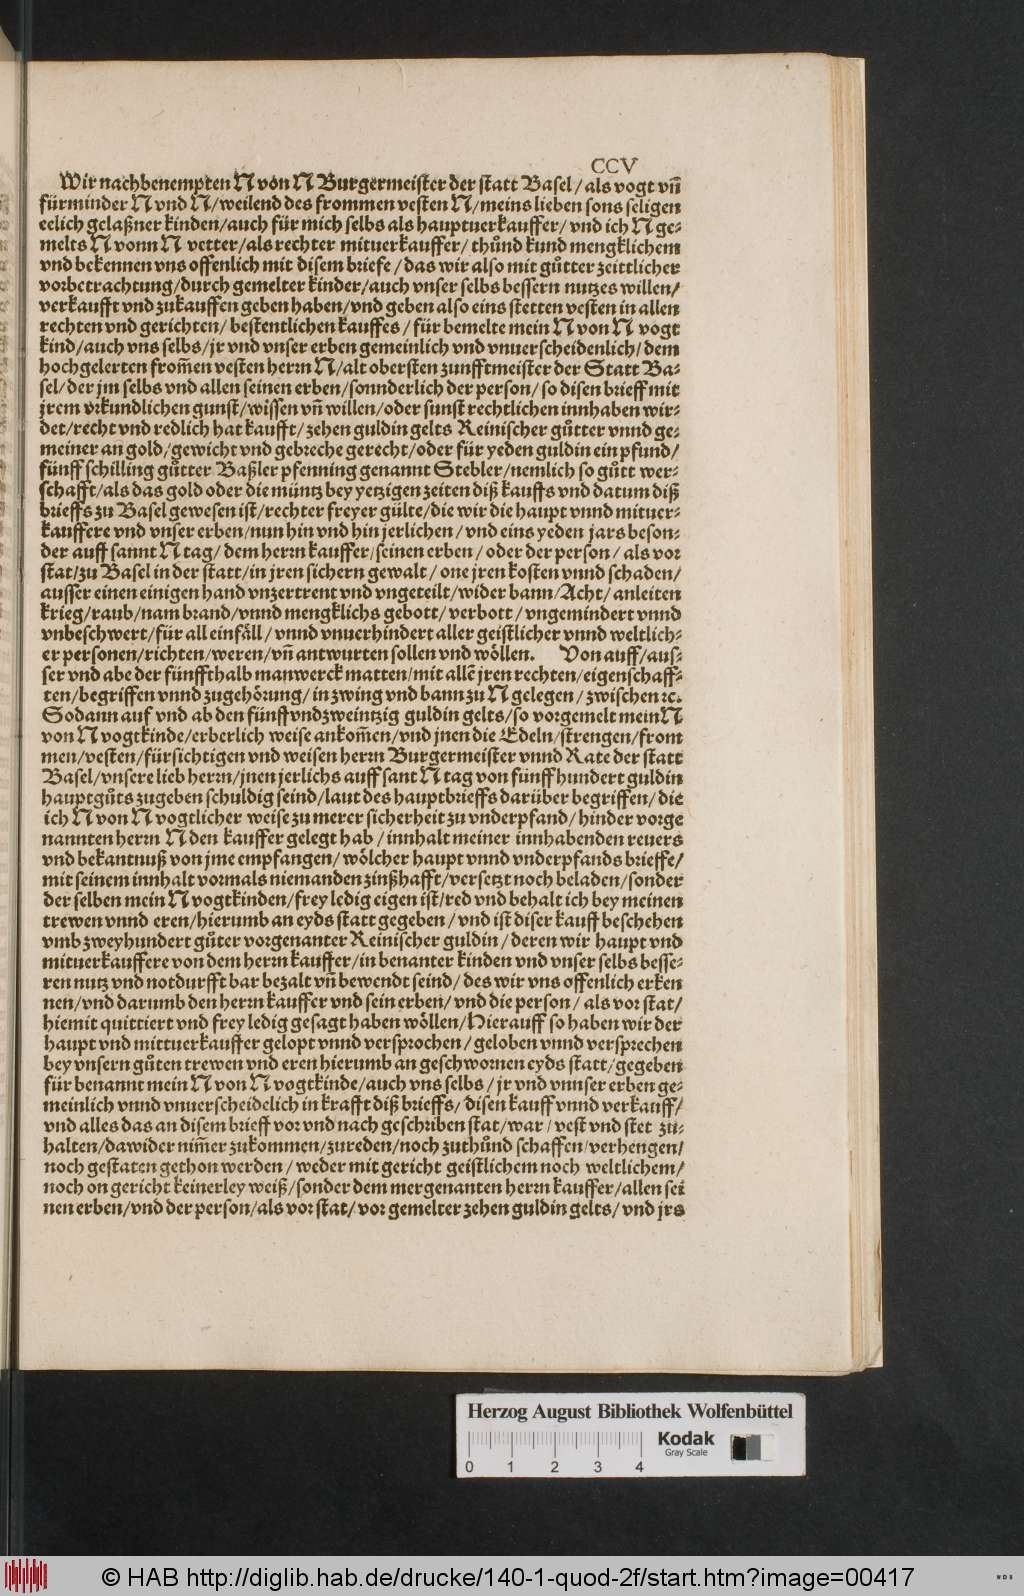 CCV
Wir nachbenempten N von N Burgermeister der statt Basel / als vogt vñ
fürminder N vnd N / weilend des frommen vesten N / meins lieben sons seligen
eelich gelaßner kinden / auch für mich selbs als hauptuerkauffer / vnd ich N ge-
melts N vonn N vetter / als rechter mituerkauffer / thůnd kund mengklichem
vnd bekennen vns offenlich mit disem briefe / das wir also mit gůtter zeittlicher
vorbetrachtung / durch gemelter kinder / auch vnser selbs bessern nutzes willen /
verkaufft vnd zukauffen geben haben / vnd geben also eins stetten vesten in allen
rechten vnd gerichten / bestentlichen kauffes / für bemelte mein N von N vogt
kind / auch vns selbs / jr vnd vnser erben gemeinlich vnd vnuerscheidenlich / dem
hochgelerten from̃en vesten herrn N / alt obersten zunfftmeister der Statt Ba-
sel / der jm selbs vnd allen seinen erben / sonnderlich der person / so disen brieff mit
jrem vrkundlichen gunst / wissen vñ willen / oder sunst rechtlichen innhaben wir-
det / recht vnd redlich hat kaufft / zehen guldin gelts Reinischer gůtter vnnd ge-
meiner an gold / gewicht vnd gebreche gerecht / oder für yeden guldin ein pfund /
fünff schilling gůtter Baßler pfenning genannt Stebler / nemlich so gůtt wer-
schafft / als das gold oder die müntz bey yetzigen zeiten diß kauffs vnd datum diß
brieffs zu Basel gewesen ist / rechter freyer gülte / die wir die haupt vnnd mituer-
kauffere vnd vnser erben / nun hin vnd hin jerlichen / vnd eins yeden jars beson-
der auff sannt N tag / dem herrn kauffer / seinen erben / oder der person / als vor
stat / zu Basel in der statt / in jren sichern gewalt / one jren kosten vnnd schaden /
ausser einen einigen hand vnzertrent vnd vngeteilt / wider bann / Acht / anleiten
krieg / raub / nam brand / vnnd mengklichs gebott / verbott / vngemindert vnnd
vnbeschwert / für all einfäll / vnnd vnuerhindert aller geistlicher vnnd weltlich-
er personen / richten / weren / vñ antwurten sollen vnd wöllen. Von auff / aus-
ser vnd abe der fünffthalb manwerck matten / mit allẽ jren rechten / eigenschaff-
ten / begriffen vnnd zugehörung / in zwing vnd bann zu N gelegen / zwischen ꝛc.
Sodann auf vnd ab den fünff vnd zweintzig guldin gelts / so vorgemelt mein N
von N vogtkinde / erberlich weise ankom̃en / vnd jnen die Edeln / strengen / from
men / vesten / fürsichtigen vnd weisen herrn Burgermeister vnnd Rate der statt
Basel / vnsere lieb herrn / jnen jerlichs auff sant N tag von fünff hundert guldin
hauptgůts zugeben schuldig seind / laut des hauptbrieffs darüber begriffen / die
ich N von N vogtlicher weise zu merer sicherheit zu vnderpfand / hinder vorge
nannten herrn N den kauffer gelegt hab / innhalt meiner innhabenden reuers
vnd bekantnuß von jme empfangen / wölcher haupt vnnd vnderpfands brieffe /
mit seinem innhalt vormals niemanden zinßhafft / versetzt noch beladen / sonder
der selben mein N vogtkinden / frey ledig eigen ist / red vnd behalt ich bey meinen
trewen vnnd eren / hierumb an eyds statt gegeben / vnd ist diser kauff beschehen
vmb zweyhundert gůter vorgenanter Reinischer guldin / deren wir haupt vnd
mituerkauffere von dem herrn kauffer / in benanter kinden vnd vnser selbs besse-
ren nutz vnd notdurfft bar bezalt vñ bewendt seind / des wir vns offenlich erken
nen / vnd darumb den herrn kauffer vnd sein erben / vnd die person / als vor stat /
hiemit quittiert vnd frey ledig gesagt haben wöllen / Hierauff so haben wir der
haupt vnd mittuerkauffer gelopt vnnd versprochen / geloben vnnd versprechen
bey vnsern gůten trewen vnd eren hierumb an geschwornen eyds statt / gegeben
für benannt mein N von N vogtkinde / auch vns selbs / jr vnd vnnser erben ge-
meinlich vnnd vnuerscheidelich in krafft diß brieffs / disen kauff vnnd verkauff /
vnd alles das an disem brieff vor vnd nach geschriben stat / war / vest vnd stet zů-
halten / dawider nim̃er zukommen / zureden / noch zuthůnd schaffen / verhengen /
noch gestaten gethon werden / weder mit gericht geistlichem noch weltlichem /
noch on gericht keinerley weiß / sonder dem mergenanten herrn kauffer / allen sei
nen erben / vnd der person / als vor stat / vor gemelter zehen guldin gelts / vnd jrs
Herzog August Bibliothek Wolfenbüttel
Kodak
Gray Scale
0 1 2 3 4
© HAB http://diglib.hab.de/drucke/140-1-quod-2f/start.htm?image=00417